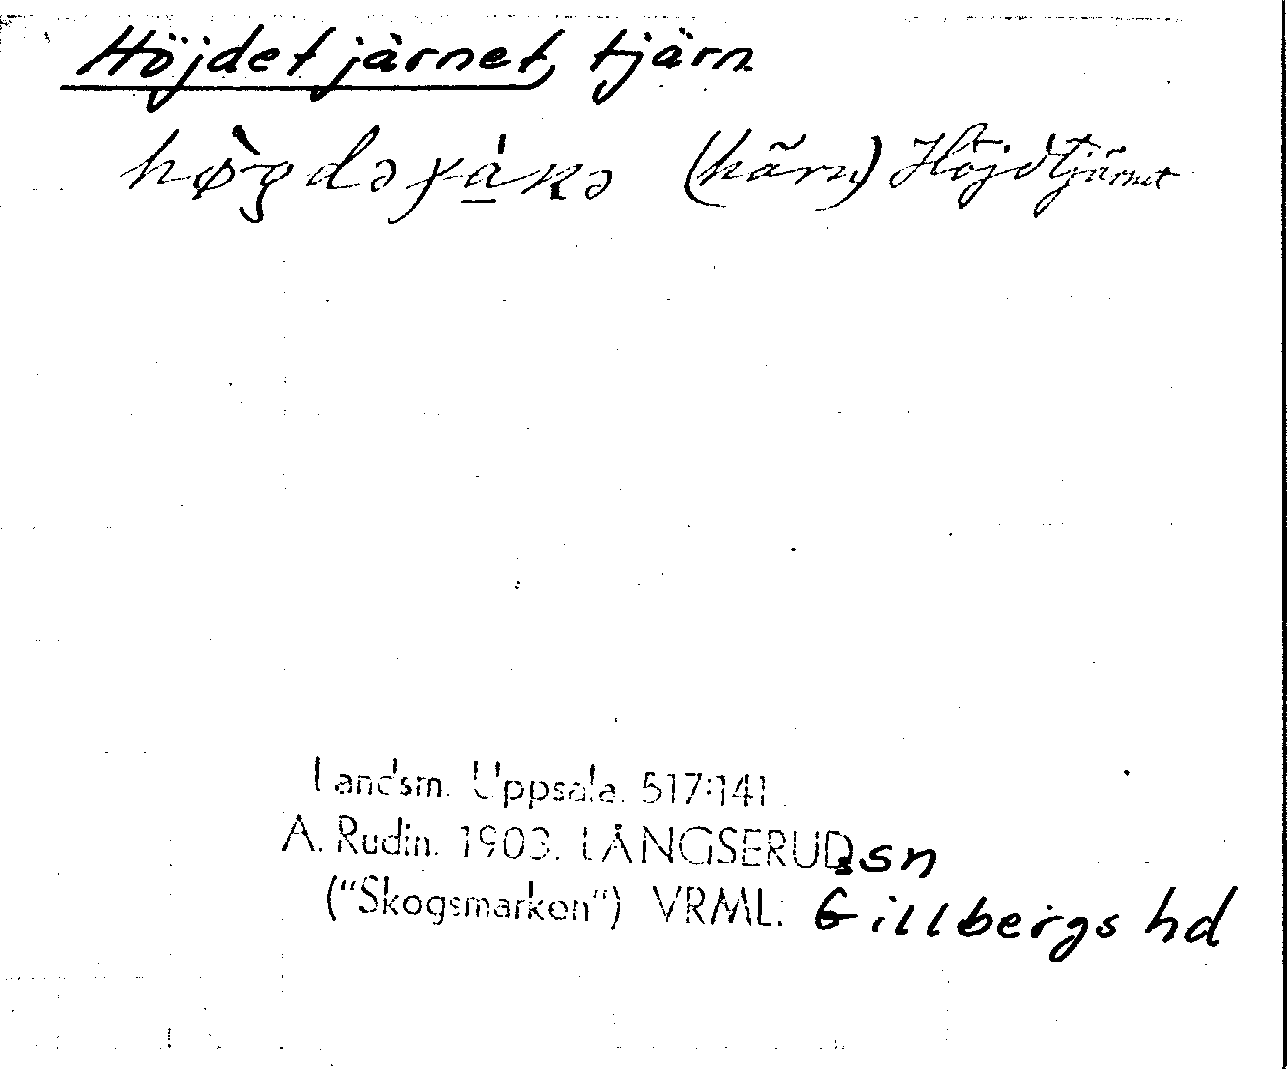 Höjdetjärnet, tjärn
(kärn) Höjdtjärnet
Landsm. Uppsala. 517:141
A. Rudin. 1903. LÅNGSERUD sn
("Skogsmarken") VRML. Gillbergs hd